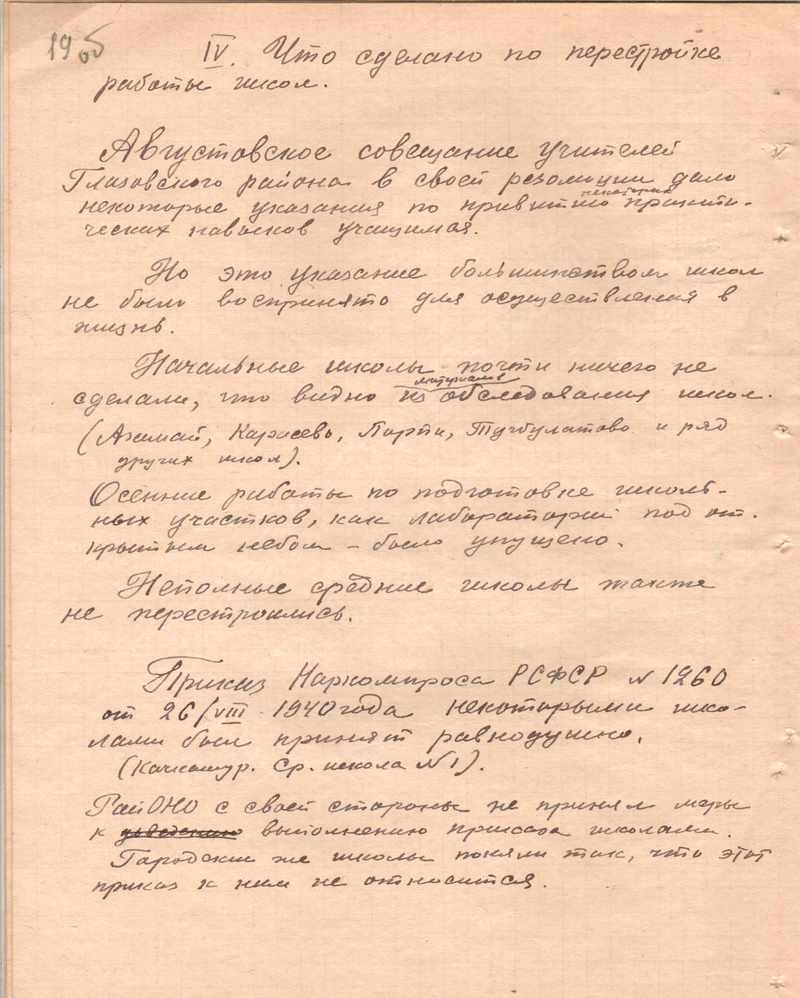 19 об
IV. Что сделано по перестройке
работы школ.
Августовское совещание учителей
Глазовского района в своей резолюции дало
некоторые указания по привитию некоторых практи-
ческих навыков учащимся.
Но это указание большинством школ
не было воспринято для осуществления в
жизнь.
Начальные школы почти ничего не
сделали, что видно из материалов обследования школ.
(Азамай, Карасево, Парзи, Тучбулатово и ряд
других школ).
Осенние работы по подготовке школь-
ных участков, как лаборатории под от-
крытым небом – было упущено.
Неполные средние школы также
не перестроились.
Приказ Наркомпроса РСФСР N 1260
от 26/VIII 1940 года некоторыми шко-
лами был принят равнодушно.
(Качкашур. Ср. школа N1).
РайОНО с своей стороны не принял меры
к выполнению приказа школами.
Городские же школы поняли так, что этот
приказ к ним не относится.